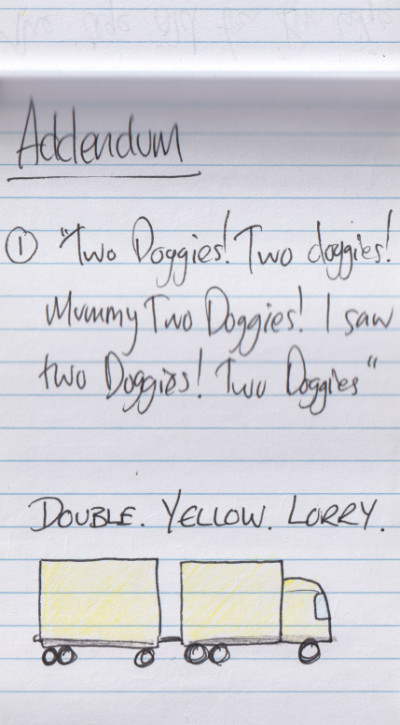 Addendum
① "Two Doggies! Two doggies!
Mummy Two Doggies! I saw
two Doggies! Two Doggies"
DOUBLE. YELLOW. LORRY.